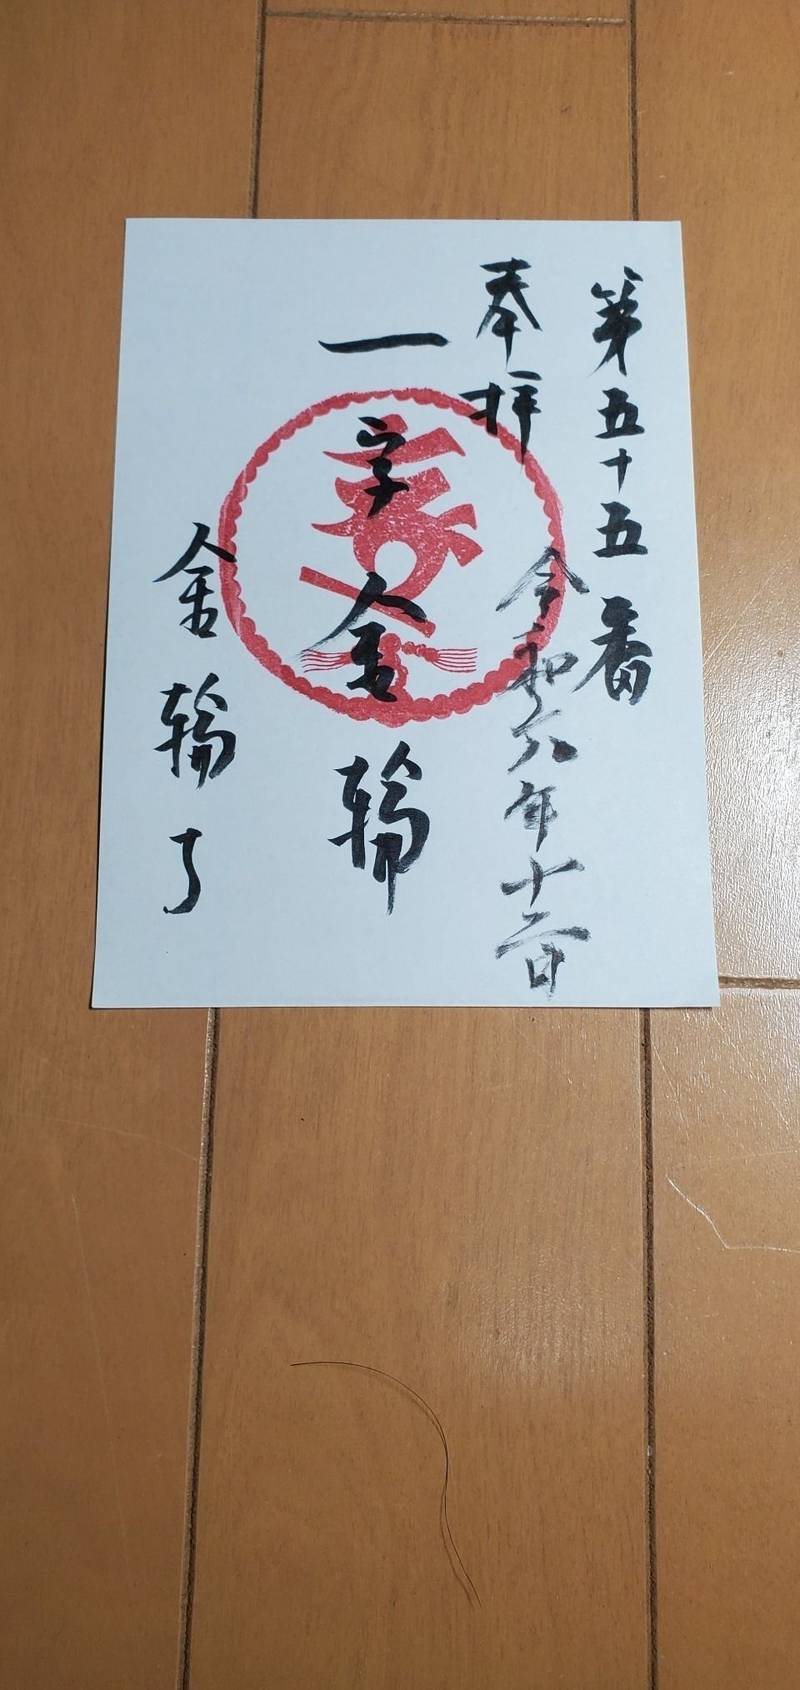 第五十五番
奉拝
令和六年十二日
一字金輪
金輪寺